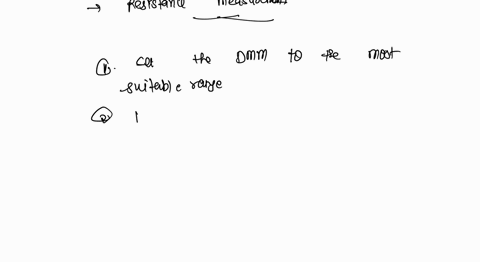 → Resistance Measurement
①. Set the DMM to the most
suitable range
②